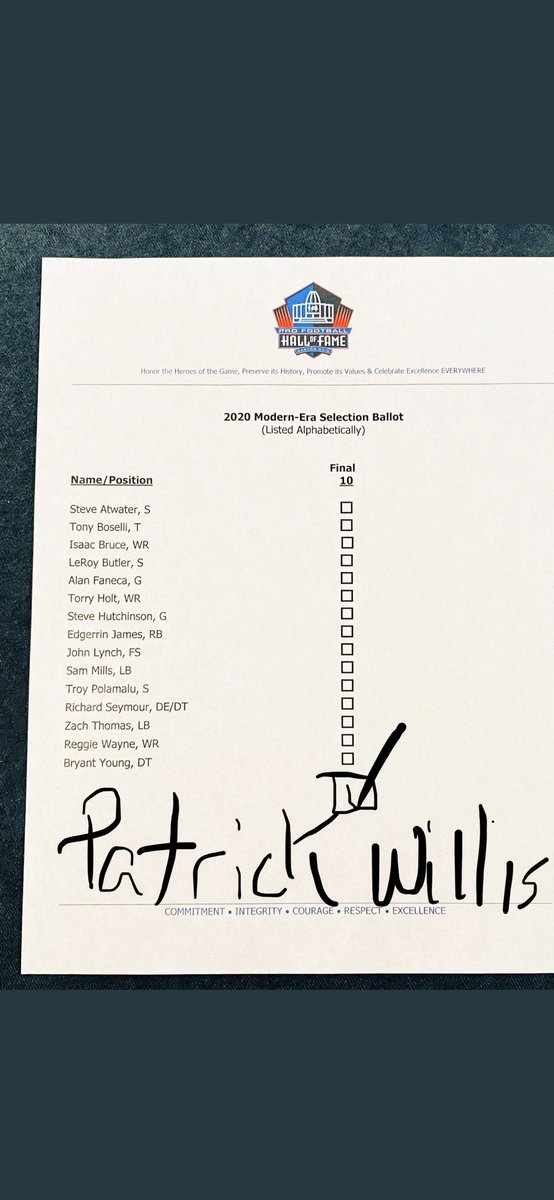 PRO FOOTBALL
HALL OF FAME
Honor the Heroes of the Game, Preserve its History, Promote its Values & Celebrate Excellence EVERYWHERE
2020 Modern-Era Selection Ballot
(Listed Alphabetically)
Final
Name/Position 10
Steve Atwater, S
Tony Boselli, T
Isaac Bruce, WR
LeRoy Butler, S
Alan Faneca, G
Torry Holt, WR
Steve Hutchinson, G
Edgerrin James, RB
John Lynch, FS
Sam Mills, LB
Troy Polamalu, S
Richard Seymour, DE/DT
Zach Thomas, LB
Reggie Wayne, WR
Bryant Young, DT
Patrick Willis
COMMITMENT • INTEGRITY • COURAGE • RESPECT • EXCELLENCE